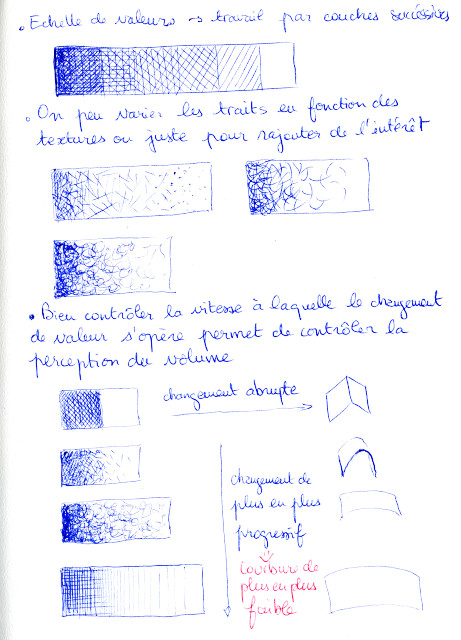 . Echelle de valeurs → travail par couches succéssives
. On peu varier les traits en fonction des
textures ou juste pour rajouter de l'intérêt
. Bien contrôler la vitesse à laquelle le changement
de valeur s'opère permet de contrôler la
perception du volume
changement abrupte
changement de
plus en plus
progressif
courbure de
plus en plus
faible